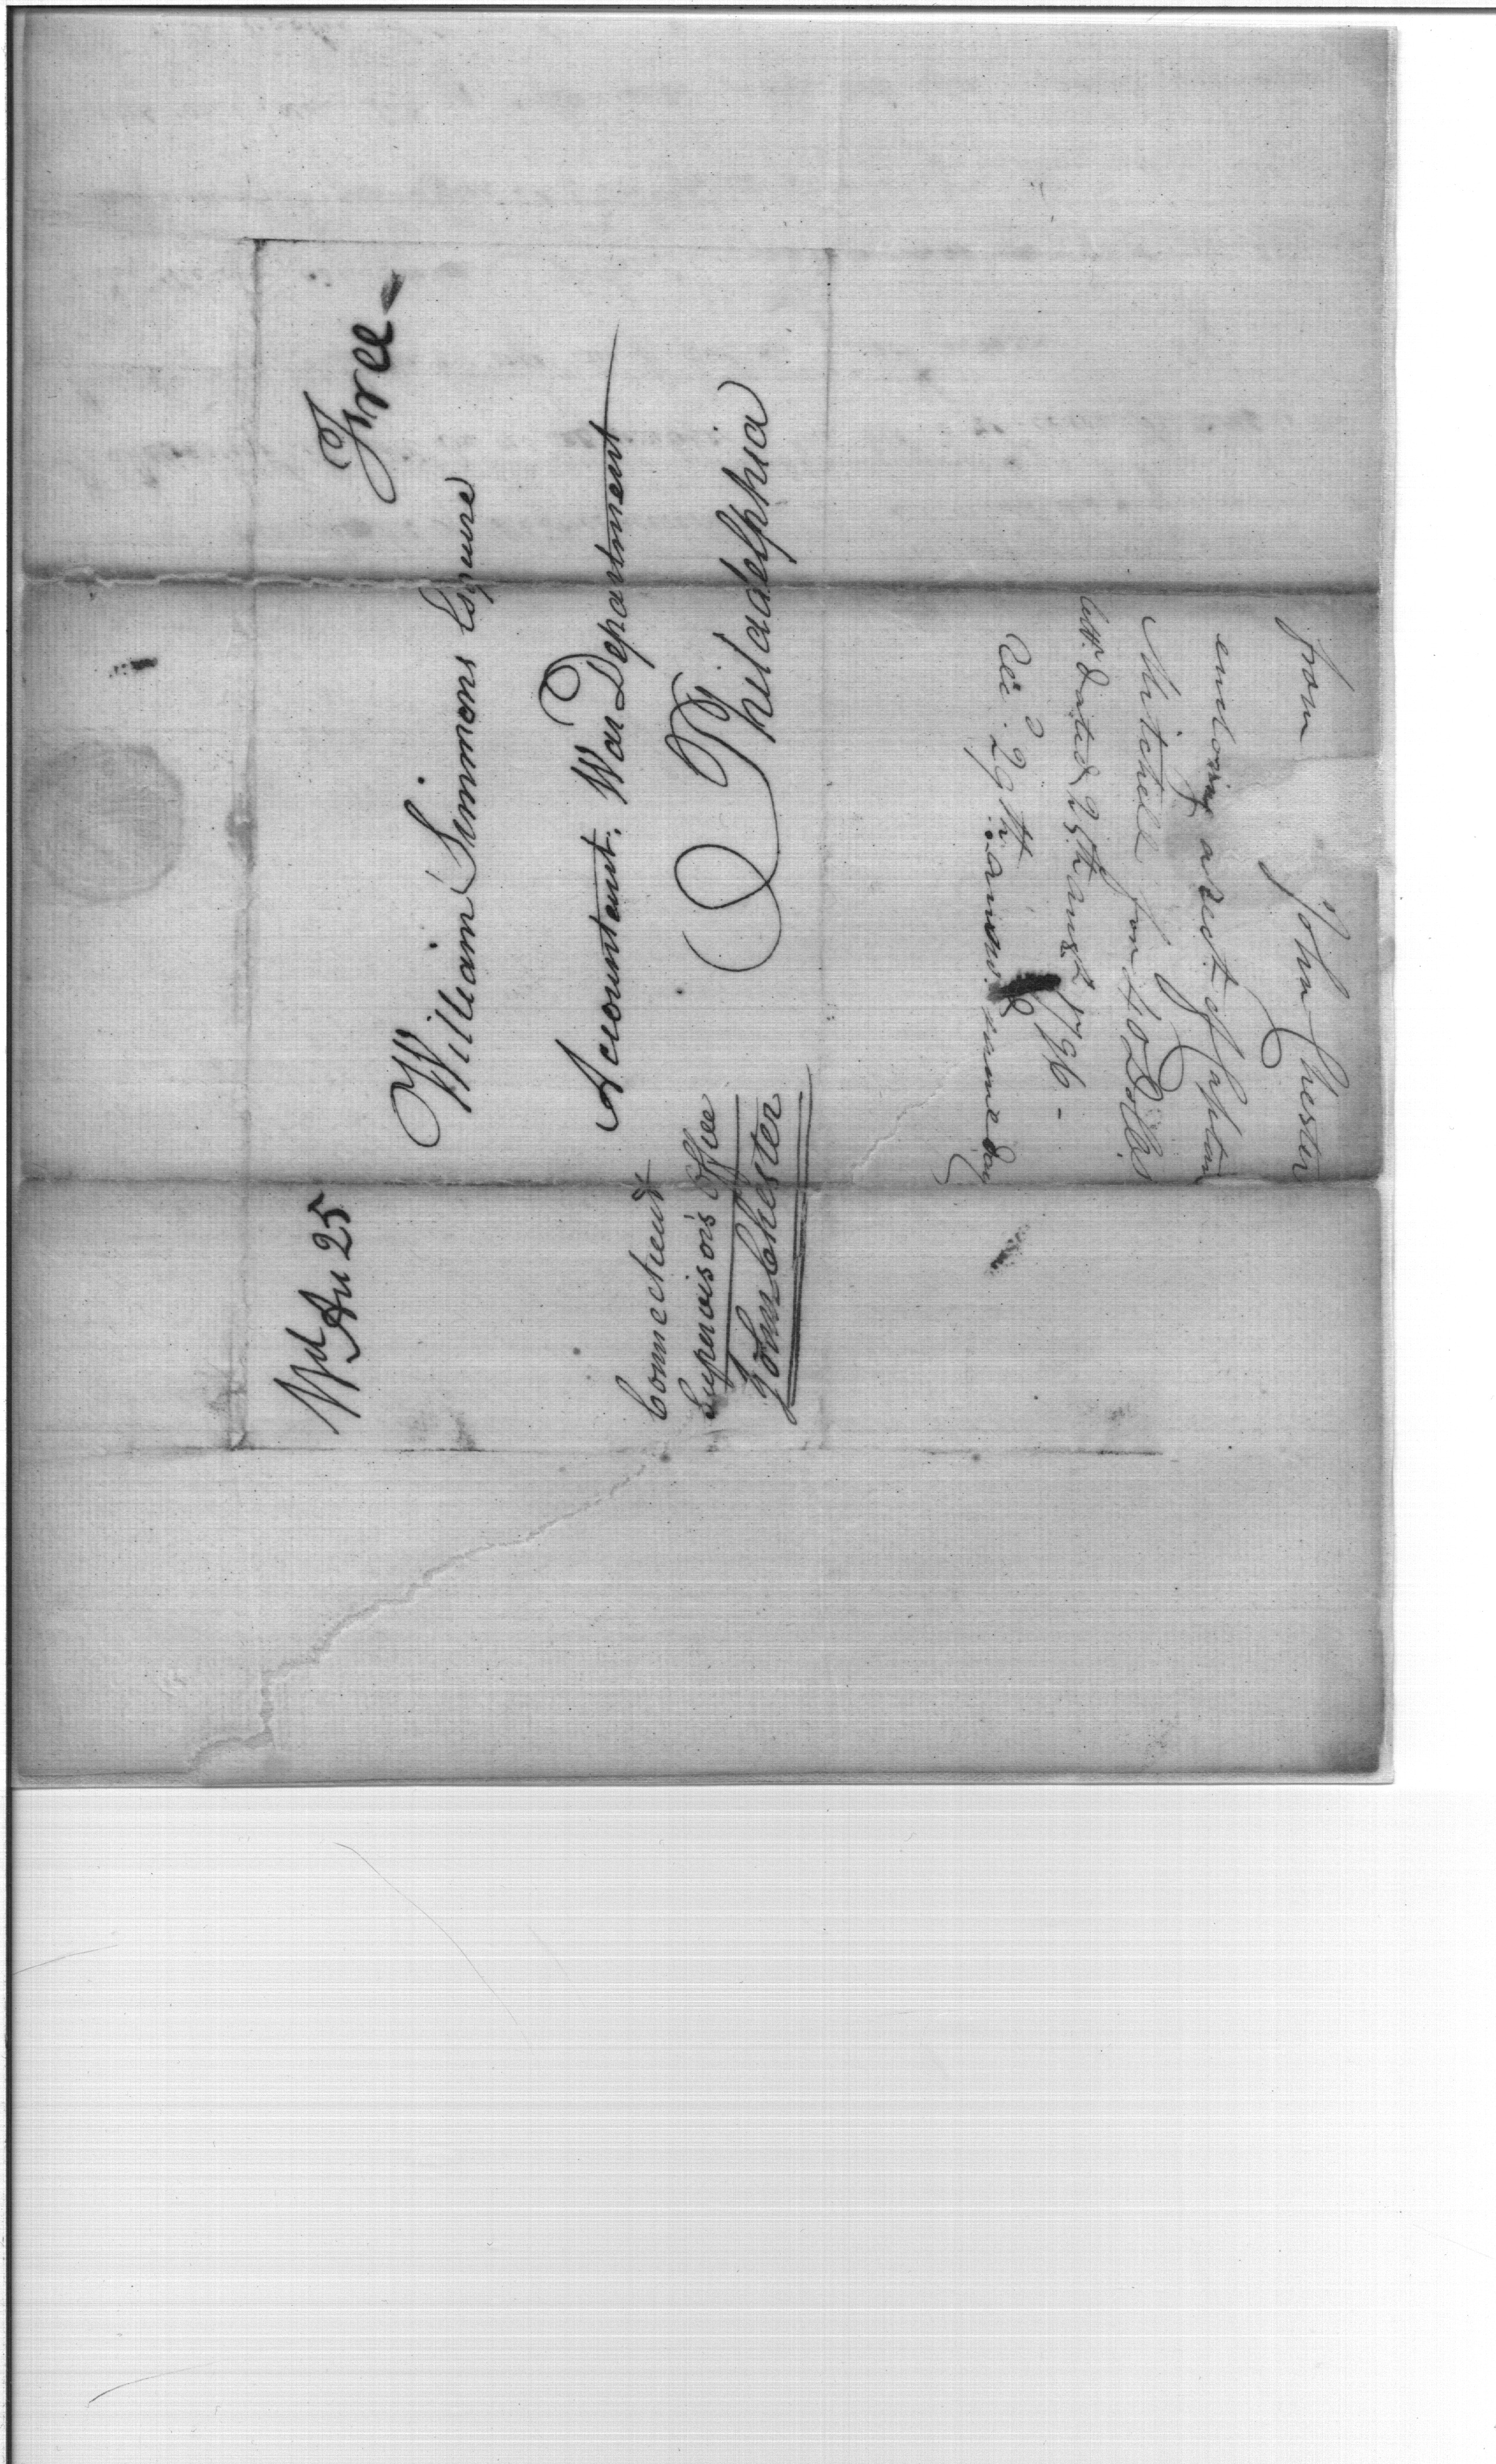 Wd Au 25
Free -
William Simmons Esquire
Accountant. War Department
Philadelphia
Connecticut
Supervisors Office
John Chester
from John Chester
enclosing a rect. of Captain
Mitchell for 40 Dolls
dated 25th augt 1796 -
Rec'd 29th. answd same day